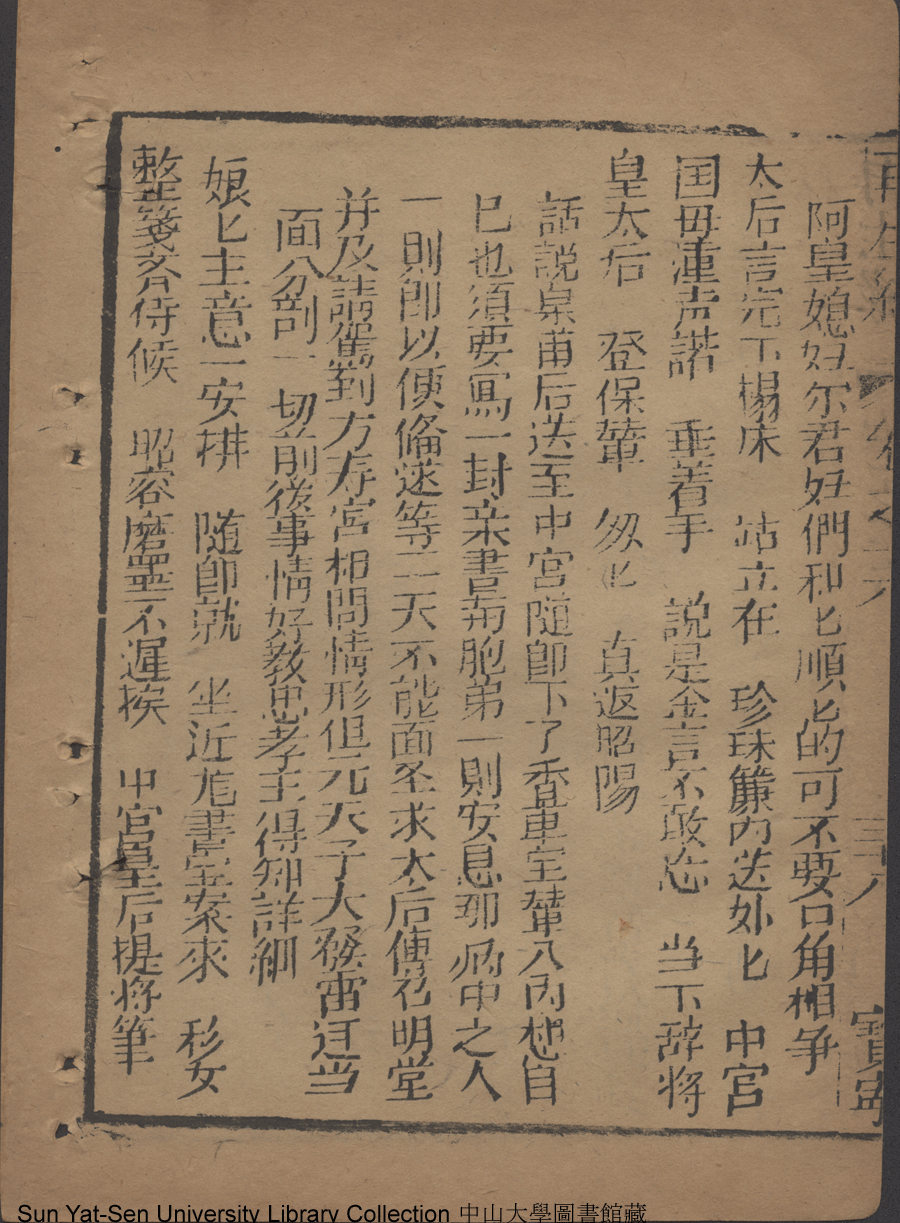 再生緣 卷之六 三十八 寶寧
阿皇媳妇尔君妃們和匕順匕的可不要口角相争
太后言完下榻床 站立在 珍珠簾内送外匕 中宫
国母連声諾 垂着手 説是金言不敢忘 当下辞将
皇太后 登保輦 匆匕 真返昭陽
話説皇甫后送至中宮随即下了香車宝輦入内想自
已也須要寫一封亲書布胞弟一則安息那病中之人
一則即以使備述等二天不能面圣求太后傳召明堂
并及請駕到万寿宮相問情形但元天子大發雷霆当
面分剖一切前後事情好教忠孝王得知詳細
娘匕主意一安排 随即就 坐近𢈪書宝案來 彩女
整箋齐侍候 昭容磨墨不遲挨 中宮皇后提将筆
Sun Yat-Sen University Library Collection 中山大學圖書館藏